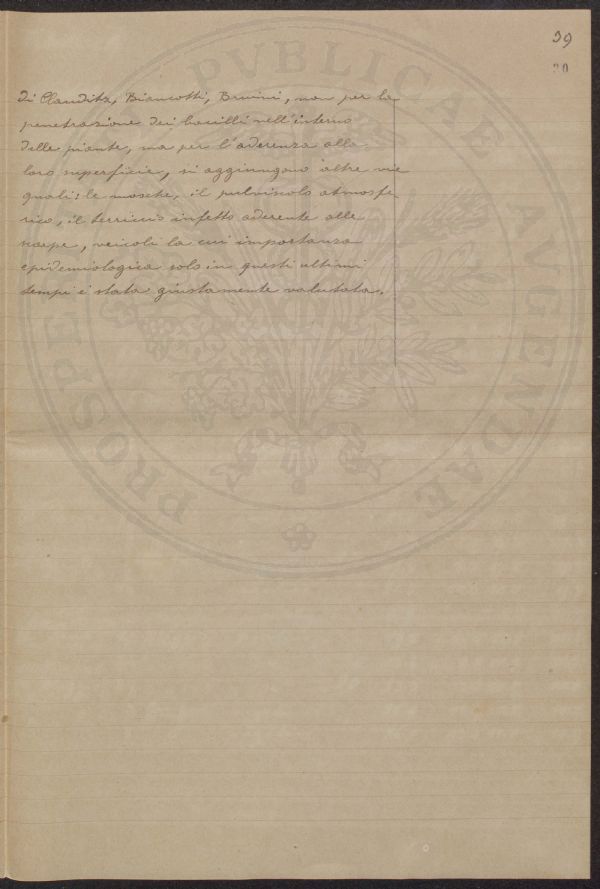 39
20
di Clauditz, Biancotti, Bruini, non per la
penetrazione dei bacilli nell'interno
delle piante, ma per l'aderenza alla
loro superficie, si aggiungono altre vie
quali: le mosche, il pulviscolo atmosfe-
rico, il terriccio infetto aderente alle
scarpe, veicoli la cui importanza
epidemiologica solo in questi ultimi
tempi è stata giustamente valutata.
PROSPERITATI PVBLICAE AVGENDAE